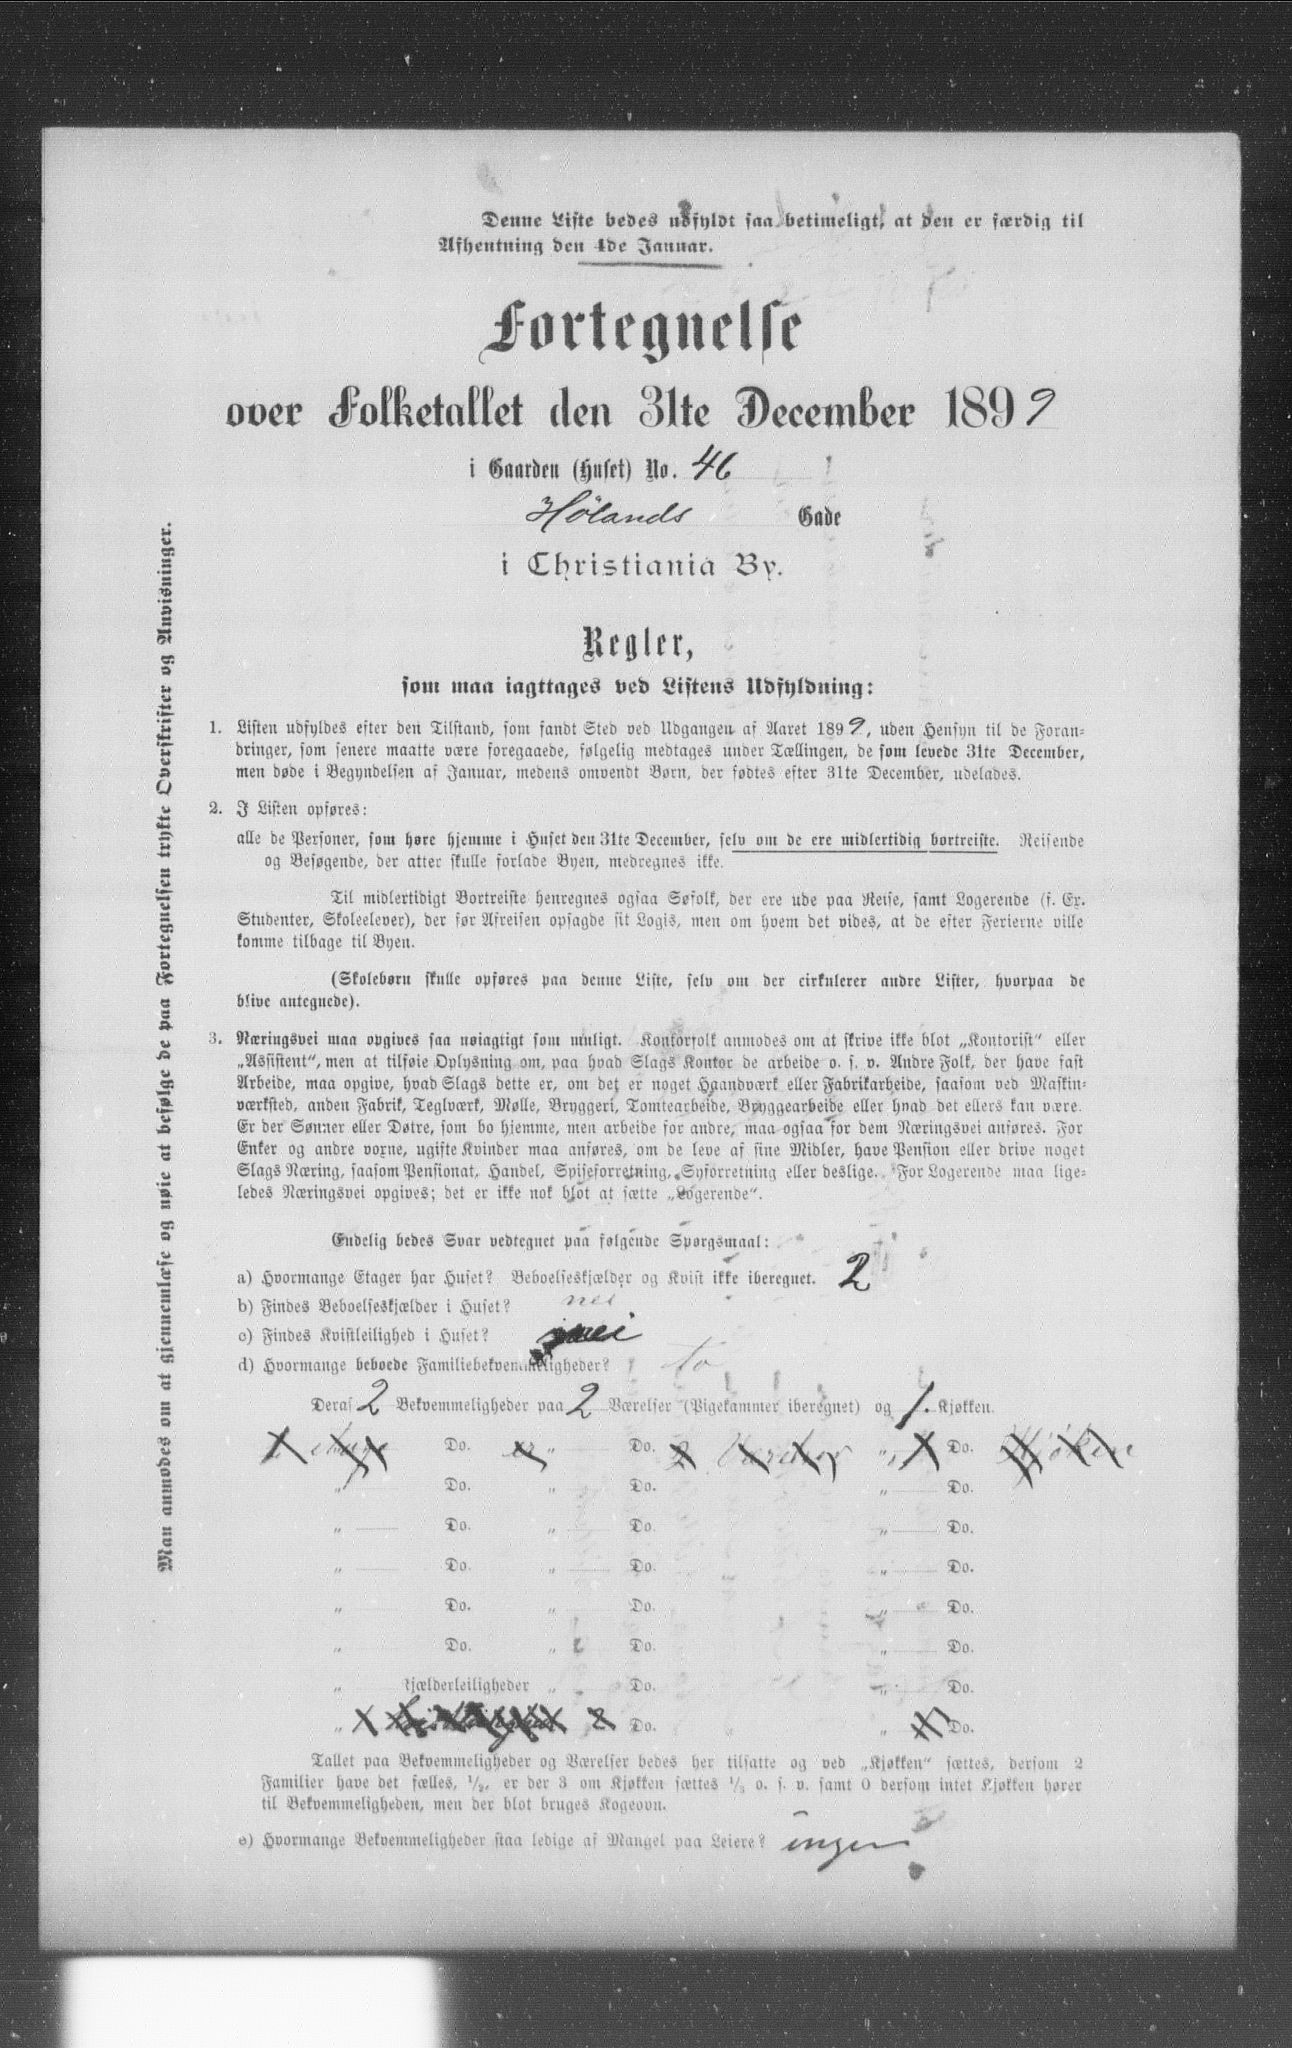 Denne Liste bedes udfyldt saa betimeligt, at den er færdig til
Afhentning den 4de Januar.
Fortegnelse
over Folketallet den 31te December 1899
i Gaarden (Huset) No. 46
Hølands Gade
i Christiania By.
Regler,
som maa iagttages ved Listens Udfyldning:
1. Listen udfyldes efter den Tilstand, som fandt Sted ved Udgangen af Aaret 1899, uden Hensyn til de Foran-
dringer, som senere maatte være foregaaede, følgelig medtages under Tællingen, de som levede 31te December,
men døde i Begyndelsen af Januar, medens omvendt Børn, der fødtes efter 31te December, udelades.
2. I Listen opføres:
alle de Personer, som høre hjemme i Huset den 31te December, selv om de ere midlertidig bortreiste. Reisende
og Besøgende, der atter skulle forlade Byen, medregnes ikke.
Til midlertidigt Bortreiste henregnes ogsaa Søfolk, der ere ude paa Reise, samt Logerende (f. Ex.
Studenter, Skoleelever), der før Afreisen opsagde sit Logis, men om hvem det vides, at de efter Ferierne ville
komme tilbage til Byen.
(Skolebørn skulle opføres paa denne Liste, selv om der cirkulerer andre Lister, hvorpaa de
blive antegnede).
3. Næringsvei maa opgives saa nøiagtigt som muligt. Kontorfolk anmodes om at skrive ikke blot „Kontorist“ eller
„Assistent“, men at tilføie Oplysning om, paa hvad Slags Kontor de arbeide o. s. v. Andre Folk, der have fast
Arbeide, maa opgive, hvad Slags dette er, om det er noget Haandværk eller Fabrikarbeide, saasom ved Maskin-
værksted, anden Fabrik, Teglværk, Mølle, Bryggeri, Tomtearbeide, Bryggearbeide eller hvad det ellers kan være.
Er der Sønner eller Døtre, som bo hjemme, men arbeide for andre, maa ogsaa for dem Næringsvei anføres. For
Enker og andre voxne, ugifte Kvinder maa anføres, om de leve af sine Midler, have Pension eller drive noget
Slags Næring, saasom Pensionat, Handel, Spiseforretning, Syforretning eller deslige. For Logerende maa lige-
ledes Næringsvei opgives; det er ikke nok blot at sætte „Logerende“.
Endelig bedes Svar vedtegnet paa følgende Spørgsmaal:
a) Hvormange Etager har Huset? Beboelseskjælder og Kvist ikke iberegnet. 2
b) Findes Beboelseskjælder i Huset? nei
c) Findes Kvistleilighed i Huset? nei
d) Hvormange beboede Familiebekvemmeligheder? to
Deraf 2 Bekvemmeligheder paa 2 Værelser (Pigekammer iberegnet) og 1. Kjøkken.
Do. „ Do. „ Do.
„ Do. „ Do. „ Do.
„ Do. „ Do. „ Do.
„ Do. „ Do. „ Do.
„ Do. „ Do. „ Do.
„ Do. „ Do. „ Do.
„ Kjælderleiligheder „ Do. „ Do.
„ 2 Do. „ Do.
Tallet paa Bekvemmeligheder og Værelser bedes her tilsatte og ved „Kjøkken“ sættes, dersom 2
Familier have det fælles, 1/2, er der 3 om Kjøkken sættes 1/3 o. s. v. samt 0 dersom intet Kjøkken hører
til Bekvemmeligheden, men der blot bruges Kogeovn.
e) Hvormange Bekvemmeligheder staa ledige af Mangel paa Leiere? ingen
Man anmodes om at gjennemlæse og nøie at befølge de paa Fortegnelsen trykte Overskrifter og Anvisninger.